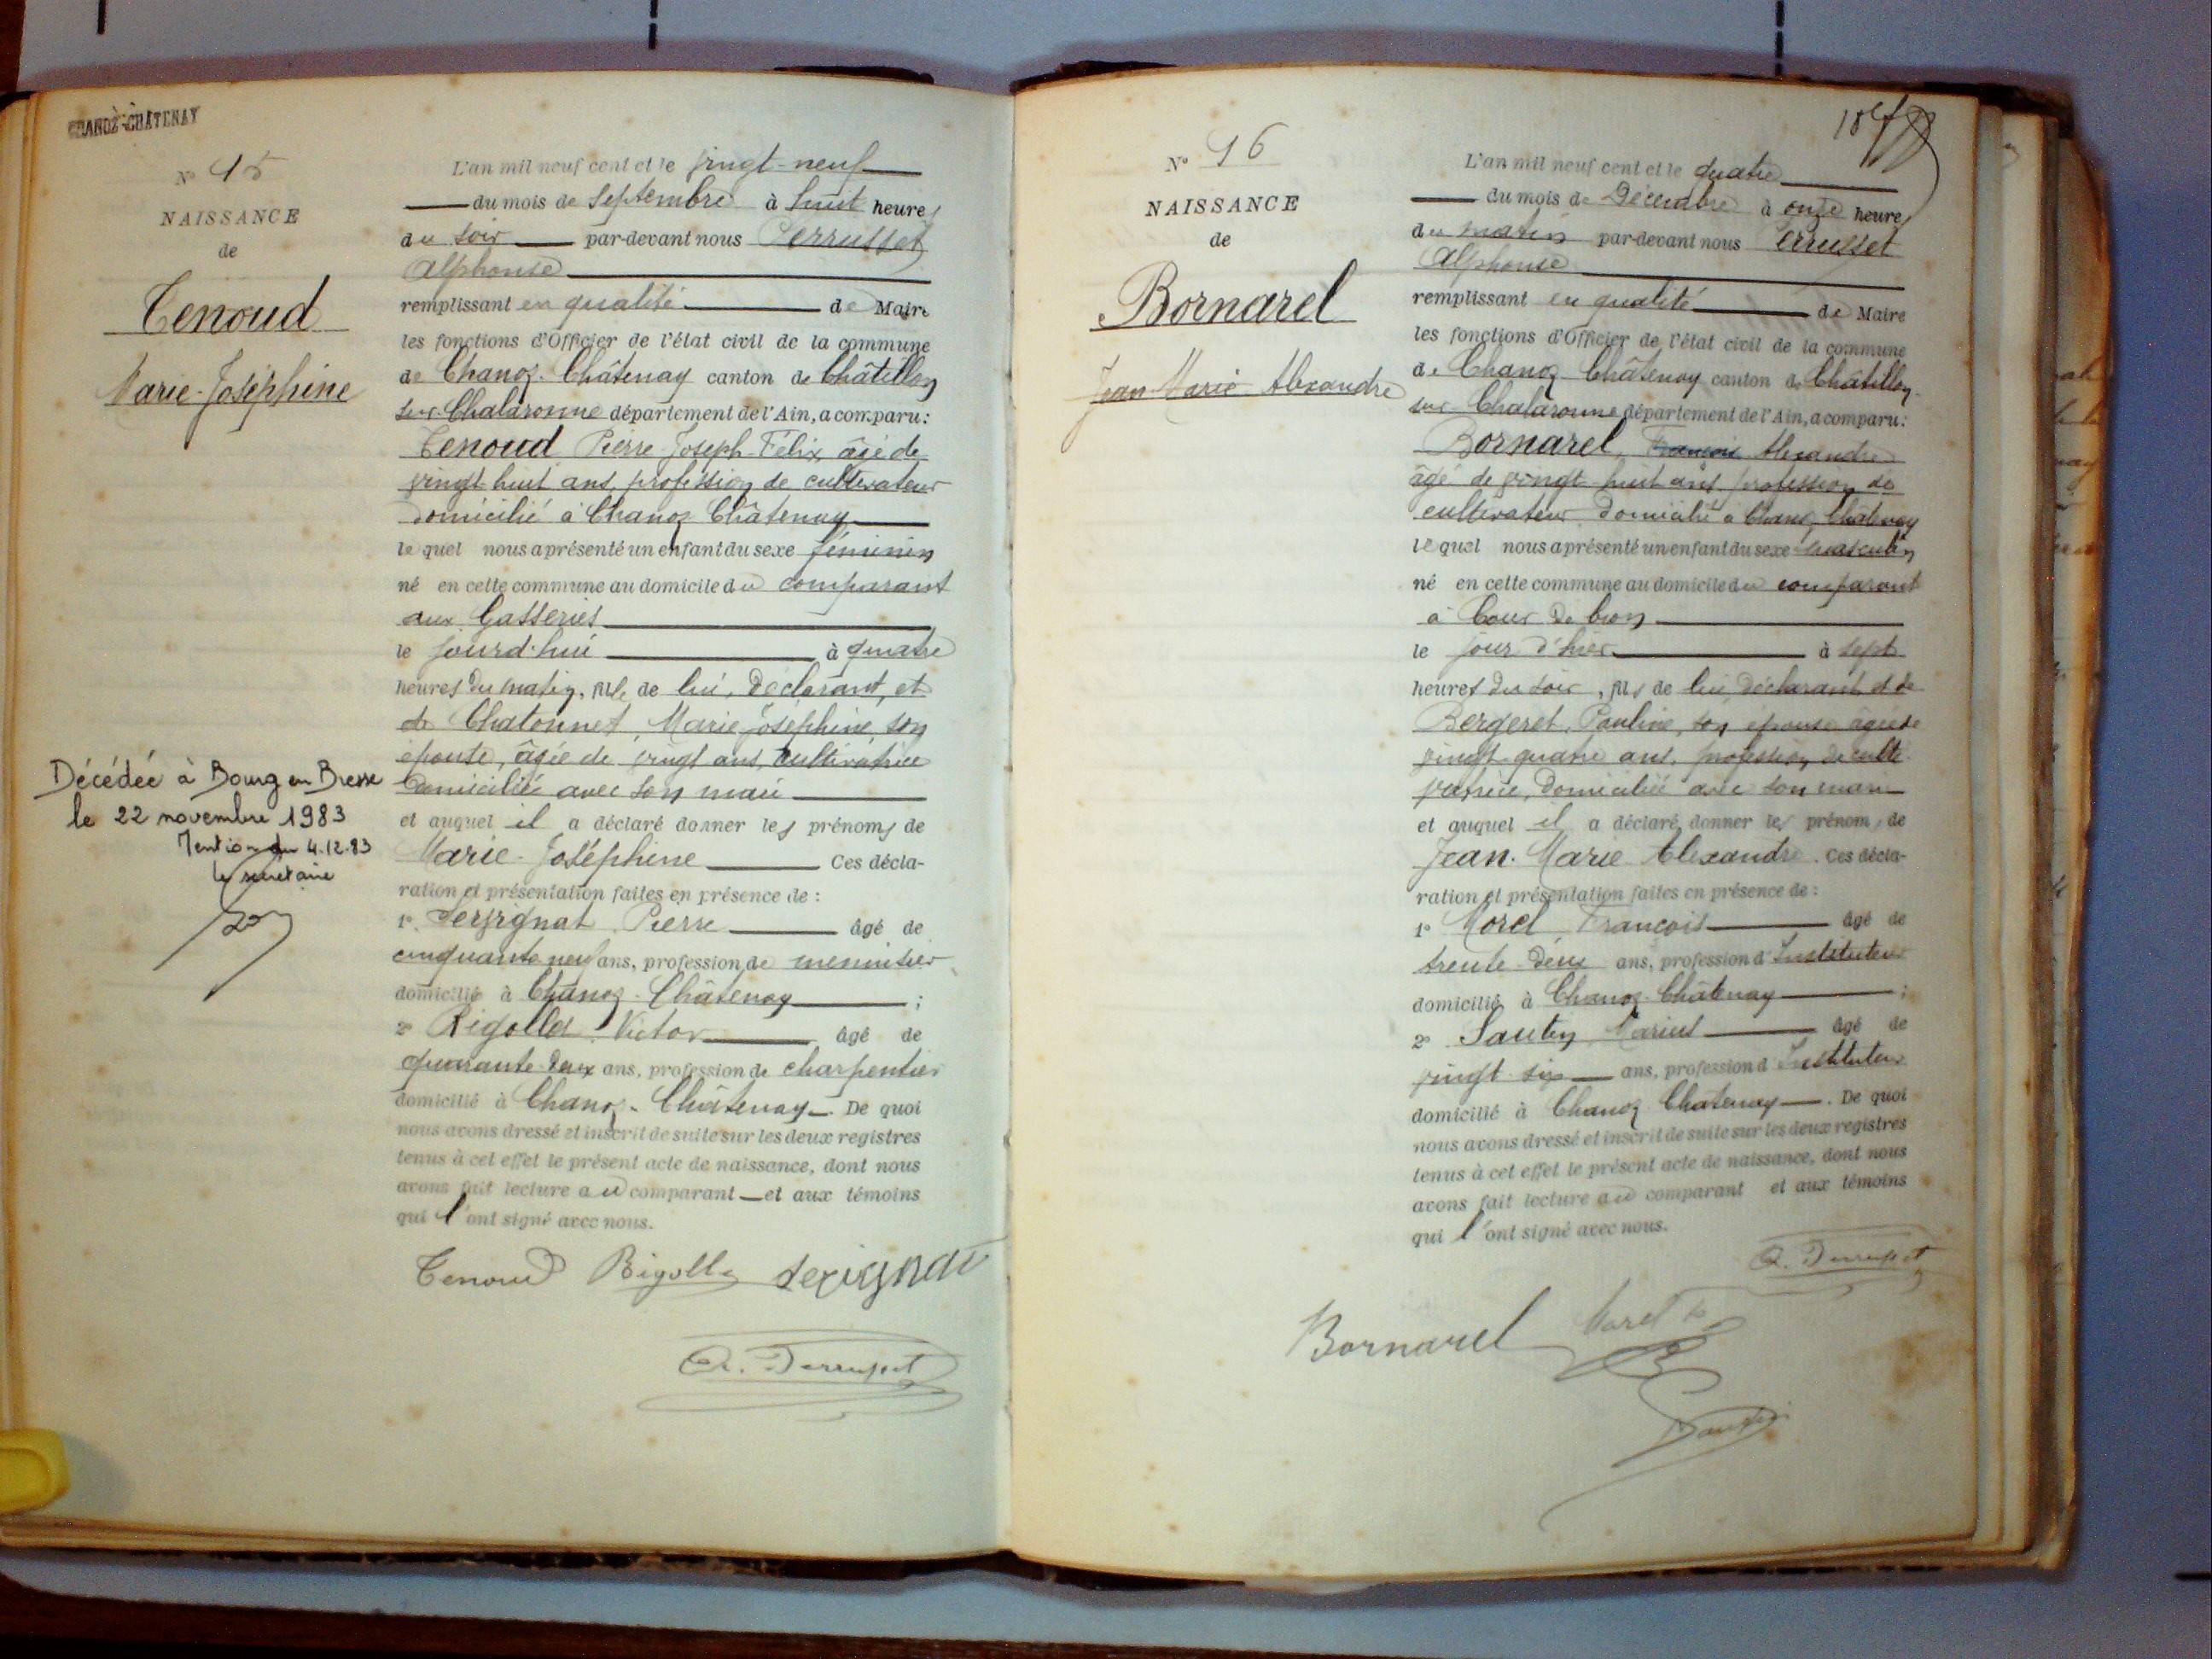 CHANOZ-CHÂTENAY
N° 15
NAISSANCE
de
Tenoud
Marie-Joséphine
Décédée à Bourg en Bresse
le 22 novembre 1983
Mention du 4.12.83
le secrétaire
L'an mil neuf cent et le vingt-neuf
du mois de Septembre à huit heures
du soir par-devant nous Perrusset
Alphonse
remplissant en qualité de Maire
les fonctions d'Officier de l'état civil de la commune
de Chanoz-Châtenay canton de Châtillon
sur-Chalaronne département de l'Ain, a comparu:
Tenoud Pierre-Joseph-Félix, âgé de
vingt huit ans, profession de cultivateur
domicilié à Chanoz Châtenay
lequel nous a présenté un enfant du sexe féminin
né en cette commune au domicile du comparant
aux Gasseries
le jourd'hui à quatre
heures du matin, fille de lui, déclarant, et
de Chatonnet, Marie Joséphine, son
épouse, âgée de vingt ans, cultivatrice
domiciliée avec son mari
et auquel il a déclaré donner les prénoms de
Marie-Joséphine Ces décla-
ration et présentation faites en présence de :
1° Pierre âgé de
cinquante neuf ans, profession de menuisier
domicilié à Chanoz-Châtenay ;
2° Rigollet Victor âgé de
quarante deux ans, profession de charpentier
domicilié à Chanoz-Châtenay. De quoi
nous avons dressé et inscrit de suite sur les deux registres
tenus à cet effet le présent acte de naissance, dont nous
avons fait lecture au comparant et aux témoins
qui l'ont signé avec nous.
Tenoud
N° 16
NAISSANCE
de
Bornarel
Jean-Marie Alexandre
L'an mil neuf cent et le quatre
du mois de Décembre à onze heures
du matin par-devant nous Perrusset
Alphonse
remplissant en qualité de Maire
les fonctions d'Officier de l'état civil de la commune
de Chanoz-Châtenay canton de Châtillon
sur Chalaronne département de l'Ain, a comparu:
Bornarel, François Alexandre
âgé de vingt huit ans, profession de
cultivateur domicilié à Chanoz Châtenay
lequel nous a présenté un enfant du sexe masculin
né en cette commune au domicile du comparant
à
le jour d'hier à sept
heures du soir, fils de lui déclarant et de
Bergeret, Pauline, son épouse âgée de
vingt quatre ans, profession de culti
vatrice, domiciliée avec son mari
et auquel il a déclaré donner les prénoms de
Jean-Marie Alexandre. Ces décla-
ration et présentation faites en présence de :
1° Morel François âgé de
trente deux ans, profession d'Instituteur
domicilié à Chanoz-Châtenay ;
2° Sautin Marius âgé de
vingt six ans, profession d'Instituteur
domicilié à Chanoz Châtenay. De quoi
nous avons dressé et inscrit de suite sur les deux registres
tenus à cet effet le présent acte de naissance, dont nous
avons fait lecture au comparant et aux témoins
qui l'ont signé avec nous.
Bornarel Morel